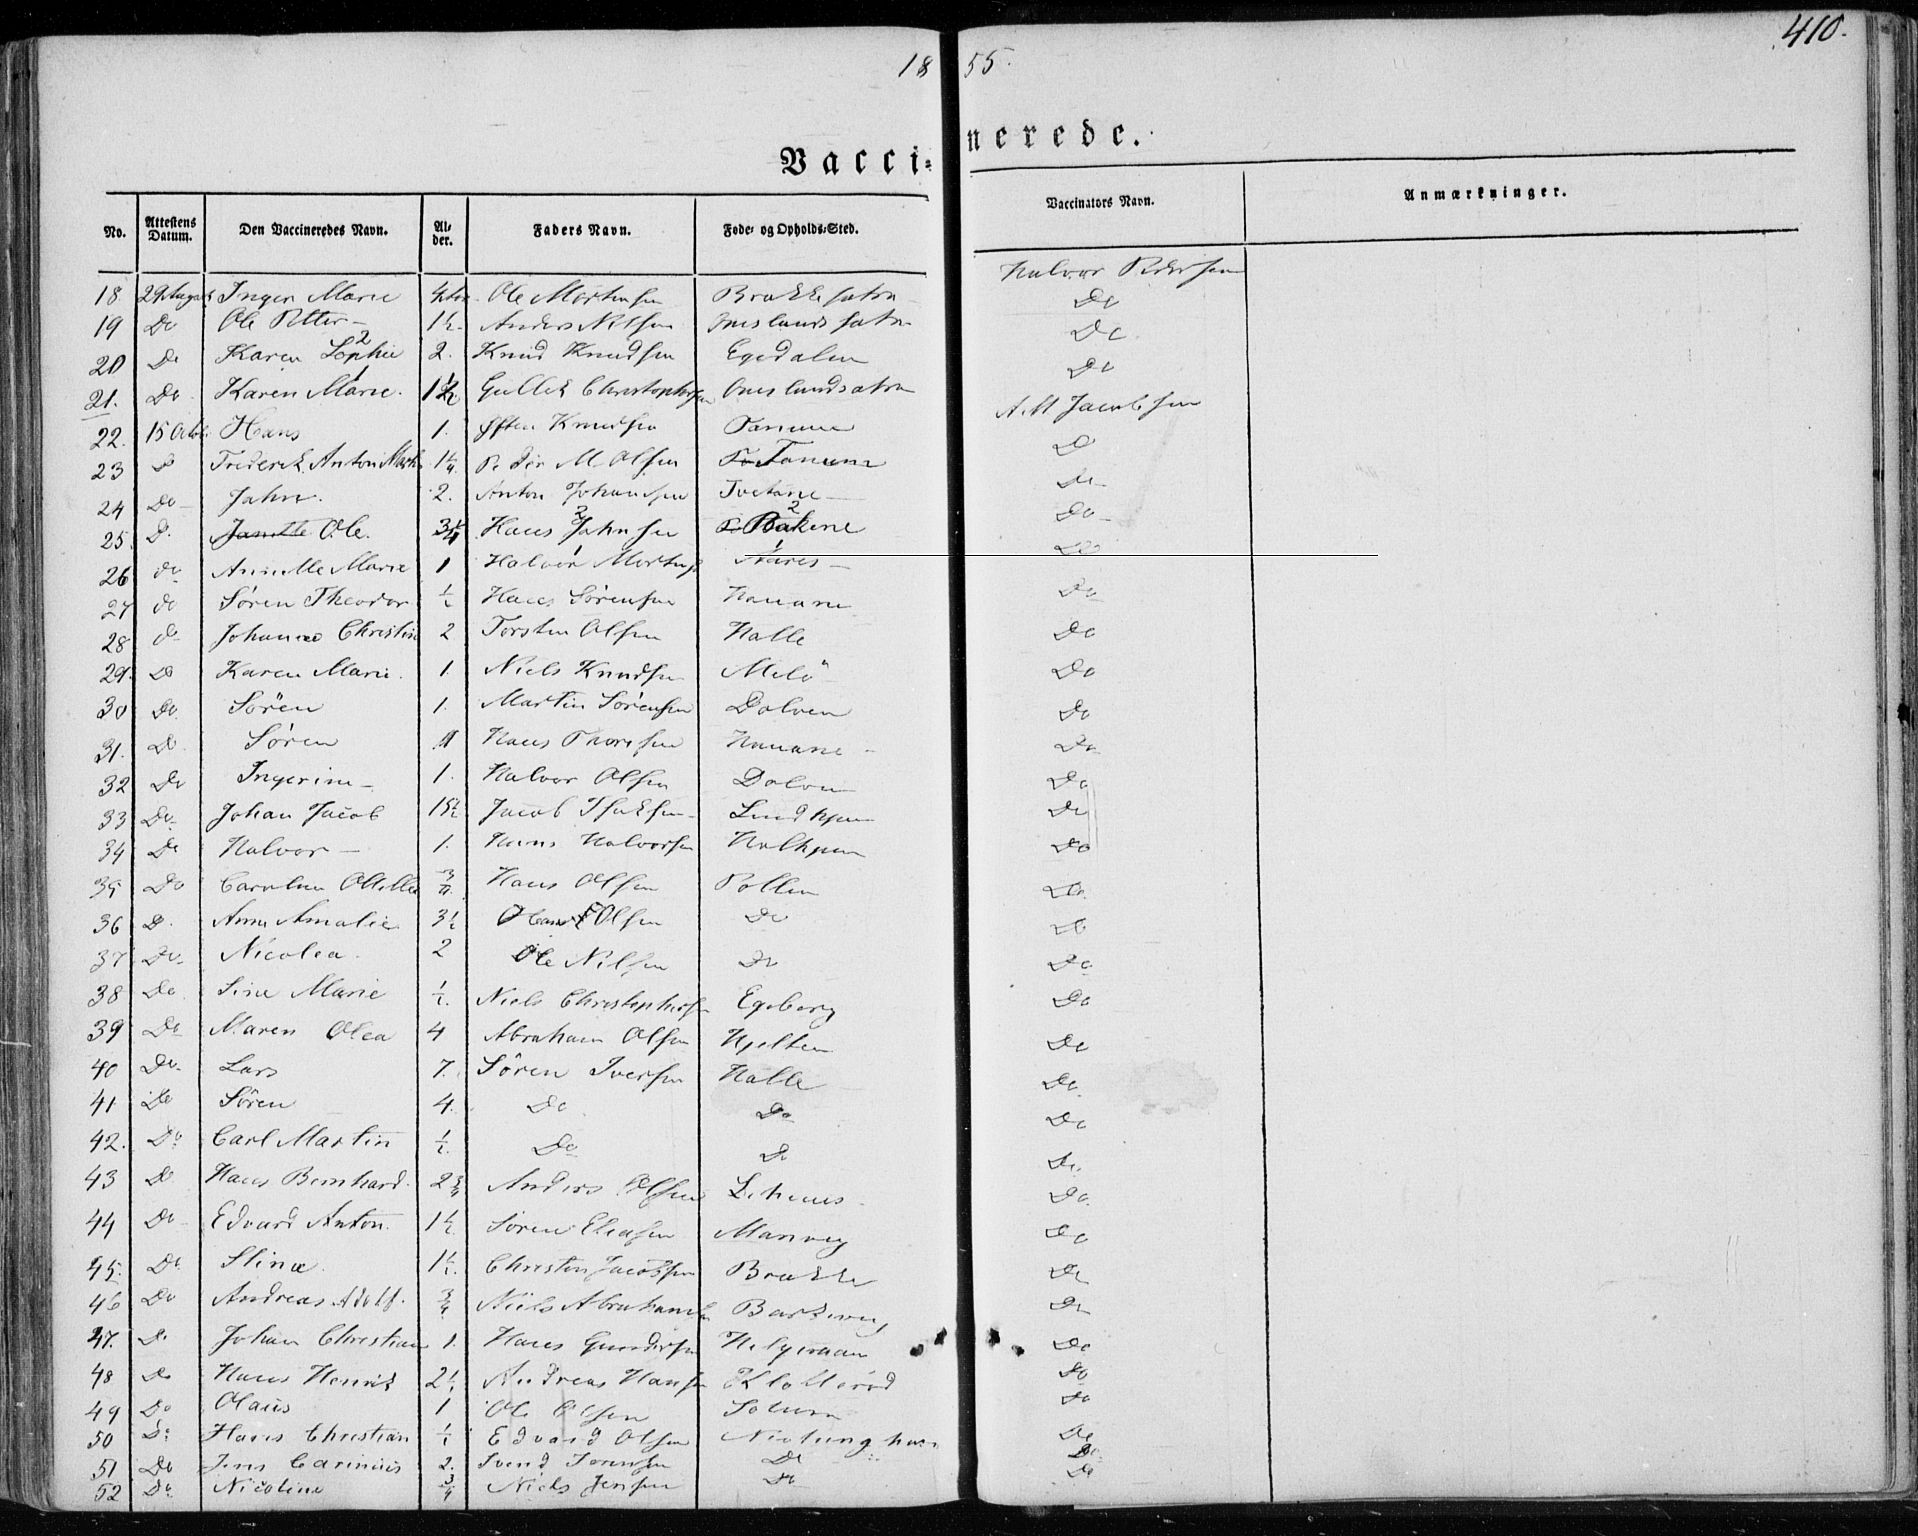 1855.
410.
Vaccinerede.
No. Attestens Datum. Den Vaccineredes Navn. Alder. Faders Navn. Føde- og Opholds-Sted. Vaccinators Navn. Anmærkninger.
18 29 August Inger Marie Ole Mortensen Brække Halvor Pedersen
19 Do Ole Petter 1½. Anders Nilsen Do
20 Do Karen Sophie 2. Knud Knudsen Egedalen Do
21. Do Karen Marie. 1½ Gullek Christophersen Do
22. 15 Octob. Hans 1. Knudsen Tanum A. M Jacobsen
23 Do Frederik Anton 1¼ Peder M. Olsen Tanum Do
24 Do Jahn. 2. Anton Johansen Tvetene Do
25. D. Ole. Hans Jahnsen Bakene Do
26 do Marie 1 Halvor Do
27 do Sören Theodor ½ Hans Sörensen Do
28 do Johanne Christin 2 Torsten Olsen Halle Do
29. Do Karen Marie. 1. Niels Knudsen Melö Do
30 Do Sören 1. Martin Sörensen Dolven Do
31. Do Sören Hans Do
32 Do Ingerine 1. Halvor Olsen Dolven Do
33 Do Johan Jacob Jacob Do
34 Do Halvor 1. Hans Halvorsen Do
35 Do Hans Olsen Pollen Do
36 D. Anne Amalie 3½ Olsen Do Do
37 Do Nicolea. 2 Ole Nilsen Do Do
38 Do Sine Marie ½. Niels Christophersen Egeberg Do
39 Do Maren Olea 4 Abraham Olsen Do
40 Do Lars 7. Sören Iversen Halle Do
41 Do Sören 4. Do Do Do
42. Do Carl Martin ½. Do Do Do
43 Do Hans Bernhard. 2¾ Anders Olsen Do
44 Do Edvard Anton. 1½ Sören Eliasen Manvig Do
45. Do Stina. 1½. Christen Jacobsen Brække Do
46 Do Andreas Adolf. ¾ Niels Abrahamsen Barkevig Do
47. Do Johan Christian 1. Hans Gundersen Helgeroaen Do
48 Do Hans Henrik Andreas Hansen Do
49 Do Olaus 1 Ole Olsen Solum Do
50 Do Hans Christian Edvard Olsen Do
51 Do Jens 2. Svend Sörensen Do Do
52 Do Nicoline ¾ Niels Jensen Do Do